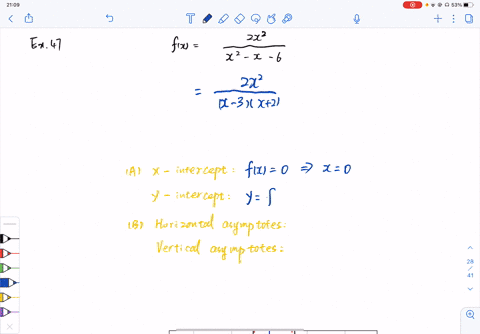 21:09
53%
Ex.47 f(x) = 2x² / x² - x - 6
= 2x² / (x-3)(x+2)
(A) x - intercept: f(x) = 0 ⇒ x = 0
y - intercept: y = ∫
(B) Horizontal asymptotes:
Vertical asymptotes:
28
/
41